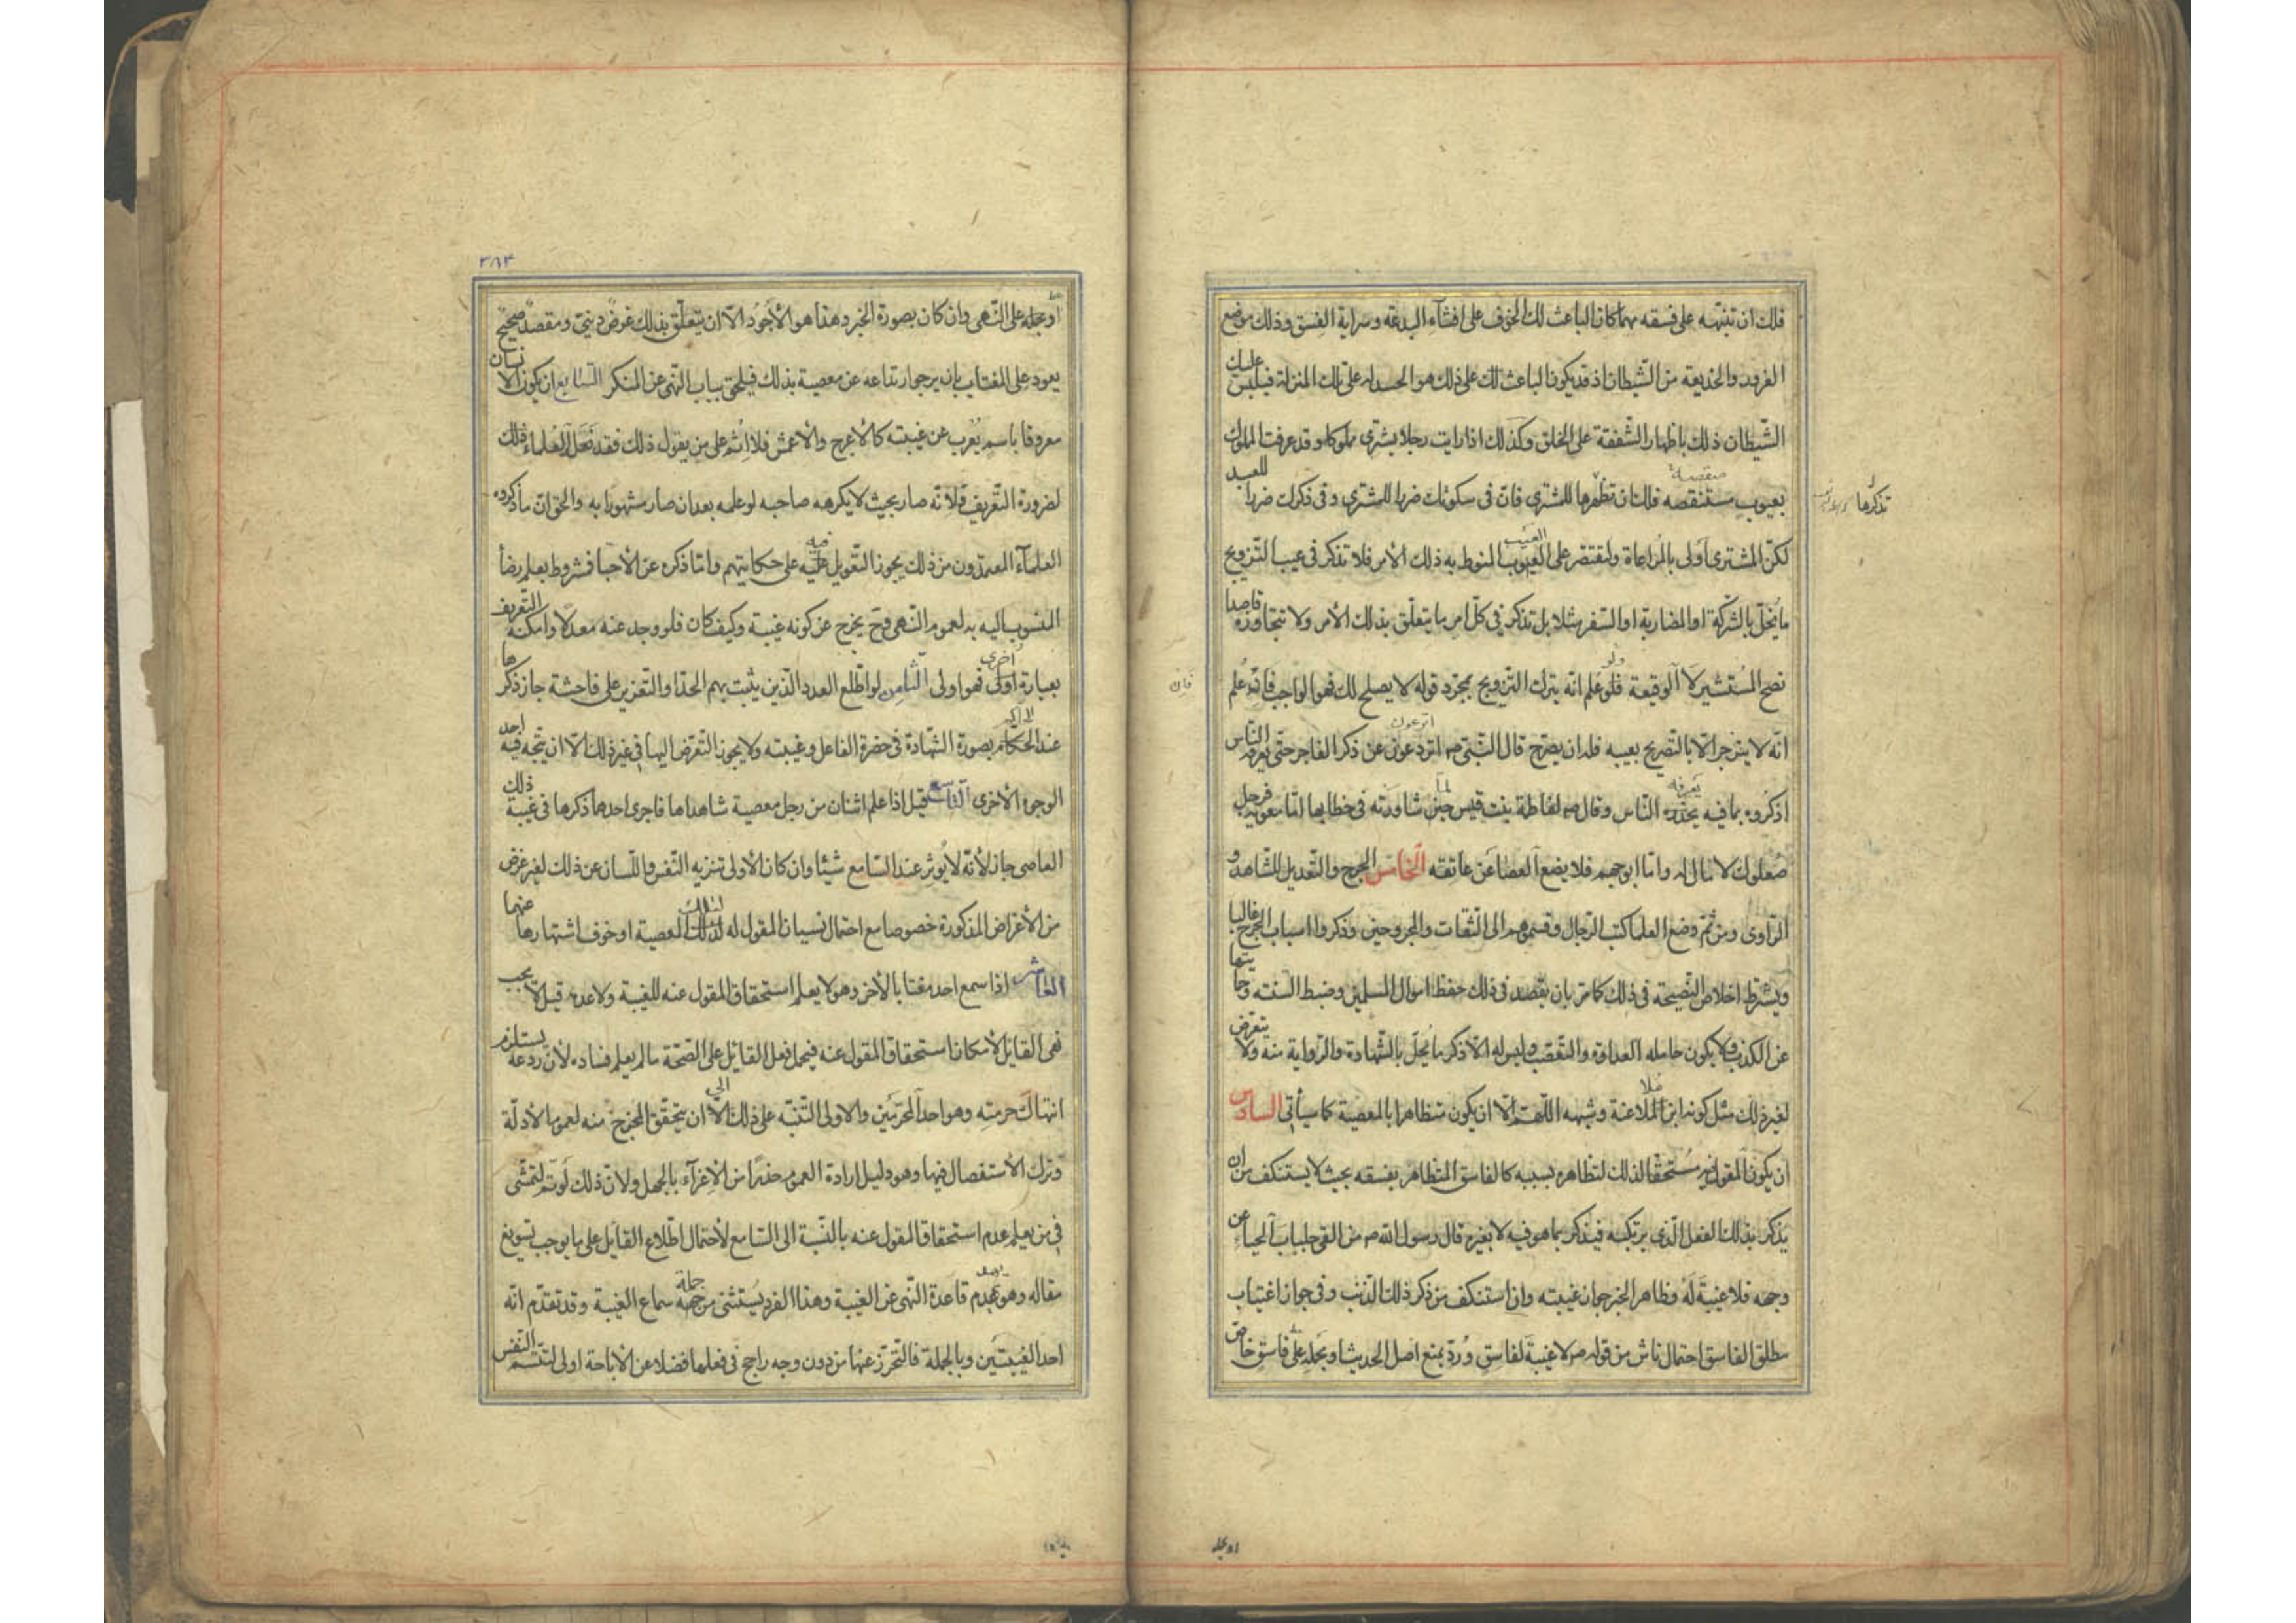 فلك ان تنبهه على فسقه مهما كان الباعث لك الخوف على افشاء البدعة وسراية الفسق وذلك موضع
الغرور والخديعة من الشيطان اذ قد يكون الباعث لك على ذلك هو الحسد له على تلك المنزلة فيلبس عليك
الشيطان ذلك باظهار الشفقة على الخلق وكذلك اذا رايت رجلا يشتري مملوكا وقد عرفت المملوك
بعيوب مستنقصه فلك ان تظهرها للمشتري فان في سكوتك ضررا للمشتري وفي ذكرك ضررا للعبد
منقصة
تذكرها
لكن المشتري اولى بالمراعاة ولتقتصر على العيوب المنوط به ذلك الأمر فلا تذكر في عيب التزويج
العيب
ما يخل بالشركة او المضاربة او السفر مثلا بل تذكر في كل امر ما يتعلق بذلك الأمر ولا تتجاوزه قاصدا
نصح المستشير لا الوقيعة فلو علم انه يترك التزويج بمجرد قوله لا يصلح لك فهو الواجب فانه علم
ولو
فان
انه لا ينزجر الا بالتصريح بعيبه فله ان يصرح قال النبي ص اترعوون عن ذكر الفاجر حتى يعرفه الناس
اذكروه بما فيه يحذره الناس وقال ص لفاطمة بنت قيس حين شاورته في خطابها اما معوية فرجل
يعرفه
لما
صعلوك لا مال له واما ابو جهم فلا يضع العصا عن عاتقه الخامس الجرح والتعديل للشاهد و
الراوي ومن ثم وضع العلما كتب الرجال وقسموهم الى الثقات والمجروحين وذكروا اسباب الجرح غالبا
ويشترط اخلاص النصيحة في ذلك كما مر بان يقصد في ذلك حفظ اموال المسلمين وضبط السنة وحمايتها
عن الكذب ولا يكون حامله العداوة والتعصب وليس له الا ذكر ما يخل بالشهادة والرواية منه ولا يتعرض
لغير ذلك مثل كونه ابن الملاعنة وشبهه اللهم الا ان يكون متظاهرا بالمعصية كما سيأتي السادس
ان يكون المقول فيه مستحقا لذلك لتظاهره بسببه كالفاسق المتظاهر بفسقه بحيث لا يستنكف من ان
يذكر بذلك الفعل الذي يرتكبه فيذكر بما هو فيه لا بغيره قال رسول الله ص من القى جلباب الحياء عن
وجهه فلا غيبة له فظاهر الخبر جواز غيبته وان استنكف من ذكر ذلك الذنب وفي جواز اغتياب
مطلق الفاسق احتمال ناش من قوله ص لا غيبة لفاسق ورد بمنع اصل الحديث او بحمله على فاسق خاص
او بحمله
٣٨٣
او بحمله على النهي وان كان بصورة الخبر وهذا هو الأجود الا ان يتعلق بذلك غرض ديني ومقصد صحيح
يعود على المغتاب بان يرجو ارتداعه عن معصية بذلك فيلحق بباب النهي عن المنكر السابع ان يكون الانسان
معروفا باسم يعرب عن غيبته كالأعرج والأعمش فلا اثم على من يقول ذلك فقد فعل العلماء ذلك
لضرورة التعريف ولانه صار بحيث لا يكرهه صاحبه لو علمه بعد ان صار مشهورا به والحق ان ما ذكروه
العلماء المعتمدون من ذلك يجوز التعويل عليه على حكايتهم واما ذكره عن الأحيا فمشروط بعلم رضا
فيه
المنسوب اليه به لعموم النهي وح يخرج عن كونه غيبة وكيف كان فلو وجد عنه معدلا وامكنه التعريف
بعبارة اولى فهو اولى الثامن لو اطلع العدد الذين يثبت بهم الحد او التعزير على فاحشة جاز ذكرها
اخرى
عند الحكام بصورة الشهادة في حضرة الفاعل وغيبته ولا يجوز التعرض اليها في غير ذلك الا ان يتجه فيه احد
الوجوه الأخرى التاسع قيل اذا علم اثنان من رجل معصية شاهداها فاجرى احدهما ذكرها في غيبة ذلك
العاصي جاز لأنه لا يؤثر عند السامع شيئا وان كان الأولى تنزيه النفس واللسان عن ذلك لغير غرض
من الأغراض المذكورة خصوصا مع احتمال نسيان المقول له لذلك المعصية او خوف اشتهارها عنهما
العاشر اذا سمع احد مغتابا لأخر وهو لا يعلم استحقاق المقول عنه للغيبة ولا عدمه قيل لا يجب
نهي القايل لأمكان استحقاق المقول عنه فيحمل فعل القائل على الصحة ما لم يعلم فساده لأن ردعه يستلزم
انتهاك حرمته وهو احد المحرمين والاولى التنبه على ذلك الا ان يتحقق المخرج منه لعموم الأدلة
الى
وترك الأستفصال فيها وهو دليل ارادة العموم حذرا من الإغراء بالجهل ولان ذلك لو تم لتمشى
في من يعلم عدم استحقاق المقول عنه بالنسبة الى السامع لأحتمال اطلاع القايل على ما يوجب تسويغ
مقاله وهو هدم قاعدة النهي عن الغيبة وهذا الفرد يستثنى من جهة سماع الغيبة وقد تقدم انه
جملة
احد الغيبتين وبالجملة فالتحرز عنها من دون وجه راجح في فعلها فضلا عن الاباحة اولى لتتسم النفس